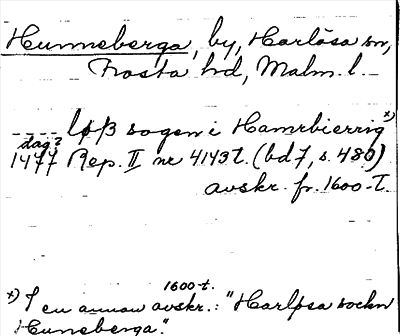 Hunneberga, by, Harlösa sn,
Frosta hd, Malm. l.
---- løß sogen i Hamrbierrig x)
dag?
1477 Rep. II nr 4143 t. (bd 7, s. 480)
avskr. fr. 1600-t.
1600-t.
x) I en annan avskr.: "Harlpsa sockn
Huneberga".